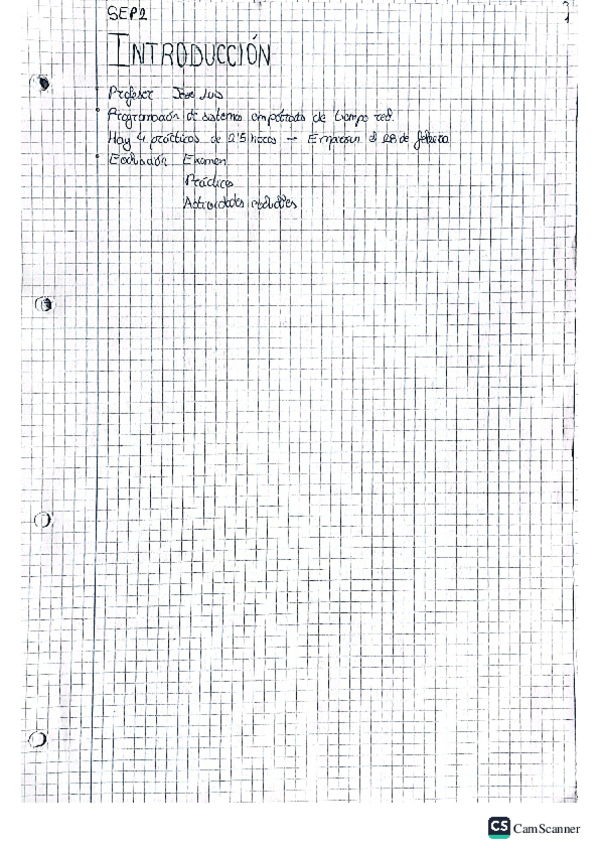 SEP2
1
INTRODUCCIÓN
Profesor José Luis
• Programación de sistemas empotrados de tiempo real.
Hay 4 prácticas de 2'5 horas → Empiezan el 28 de febrero
• Evaluación Examen
Prácticas
Actividades
CS CamScanner